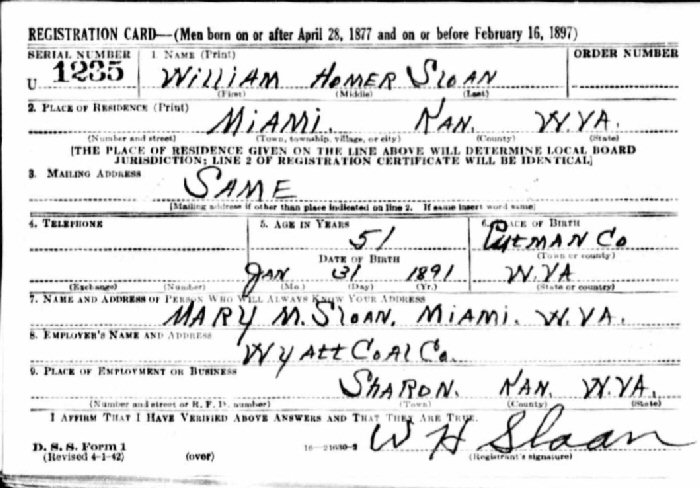 REGISTRATION CARD—(Men born on or after April 28, 1877 and on or before February 16, 1897)
SERIAL NUMBER 1. NAME (Print) ORDER NUMBER
U 1235 WILLIAM HOMER SLOAN
(First) (Middle) (Last)
2. PLACE OF RESIDENCE (Print)
MIAMI. KAN. W.VA.
(Number and street) (Town, township, village, or city) (County) (State)
[THE PLACE OF RESIDENCE GIVEN ON THE LINE ABOVE WILL DETERMINE LOCAL BOARD
JURISDICTION; LINE 2 OF REGISTRATION CERTIFICATE WILL BE IDENTICAL]
3. MAILING ADDRESS
SAME
[Mailing address if other than place indicated on line 2. If same insert word same]
4. TELEPHONE 5. AGE IN YEARS 6. PLACE OF BIRTH
51 PUTMAN CO
(Town or county)
DATE OF BIRTH
JAN 31 1891 W.VA
(Exchange) (Number) (Mo.) (Day) (Yr.) (State or country)
7. NAME AND ADDRESS OF PERSON WHO WILL ALWAYS KNOW YOUR ADDRESS
MARY M. SLOAN, MIAMI. W.VA.
8. EMPLOYER'S NAME AND ADDRESS
WYATT COAL CO.
9. PLACE OF EMPLOYMENT OR BUSINESS
SHARON. KAN. W.VA.
(Number and street or R. F. D. number) (Town) (County) (State)
I AFFIRM THAT I HAVE VERIFIED ABOVE ANSWERS AND THAT THEY ARE TRUE.
D. S. S. Form 1
(Revised 4-1-42) (over) 16—21630-2 W H Sloan
(Registrant's signature)